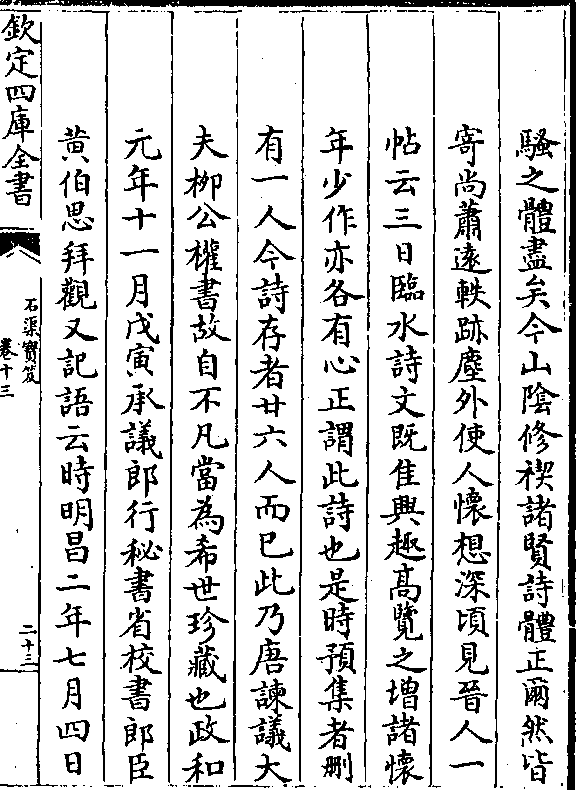 騷之體盡矣今山陰修禊諸賢詩體正爾然皆
寄尚蕭遠軼跡塵外使人懷想深頃見晉人一
帖云三日臨水詩文既隹興趣高覽之増諸懷
年少作亦各有心正謂此詩也是時預集者刪
有一人今詩存者廿六人而已此乃唐諫議大
夫柳公權書故自不凡當為希世珍藏也政和
元年十一月戊寅承議郎行秘書省校書郎臣
黄伯思拜觀又記語云時明昌二年七月四日
欽定四庫全書
石渠寶笈
卷十三
二十三